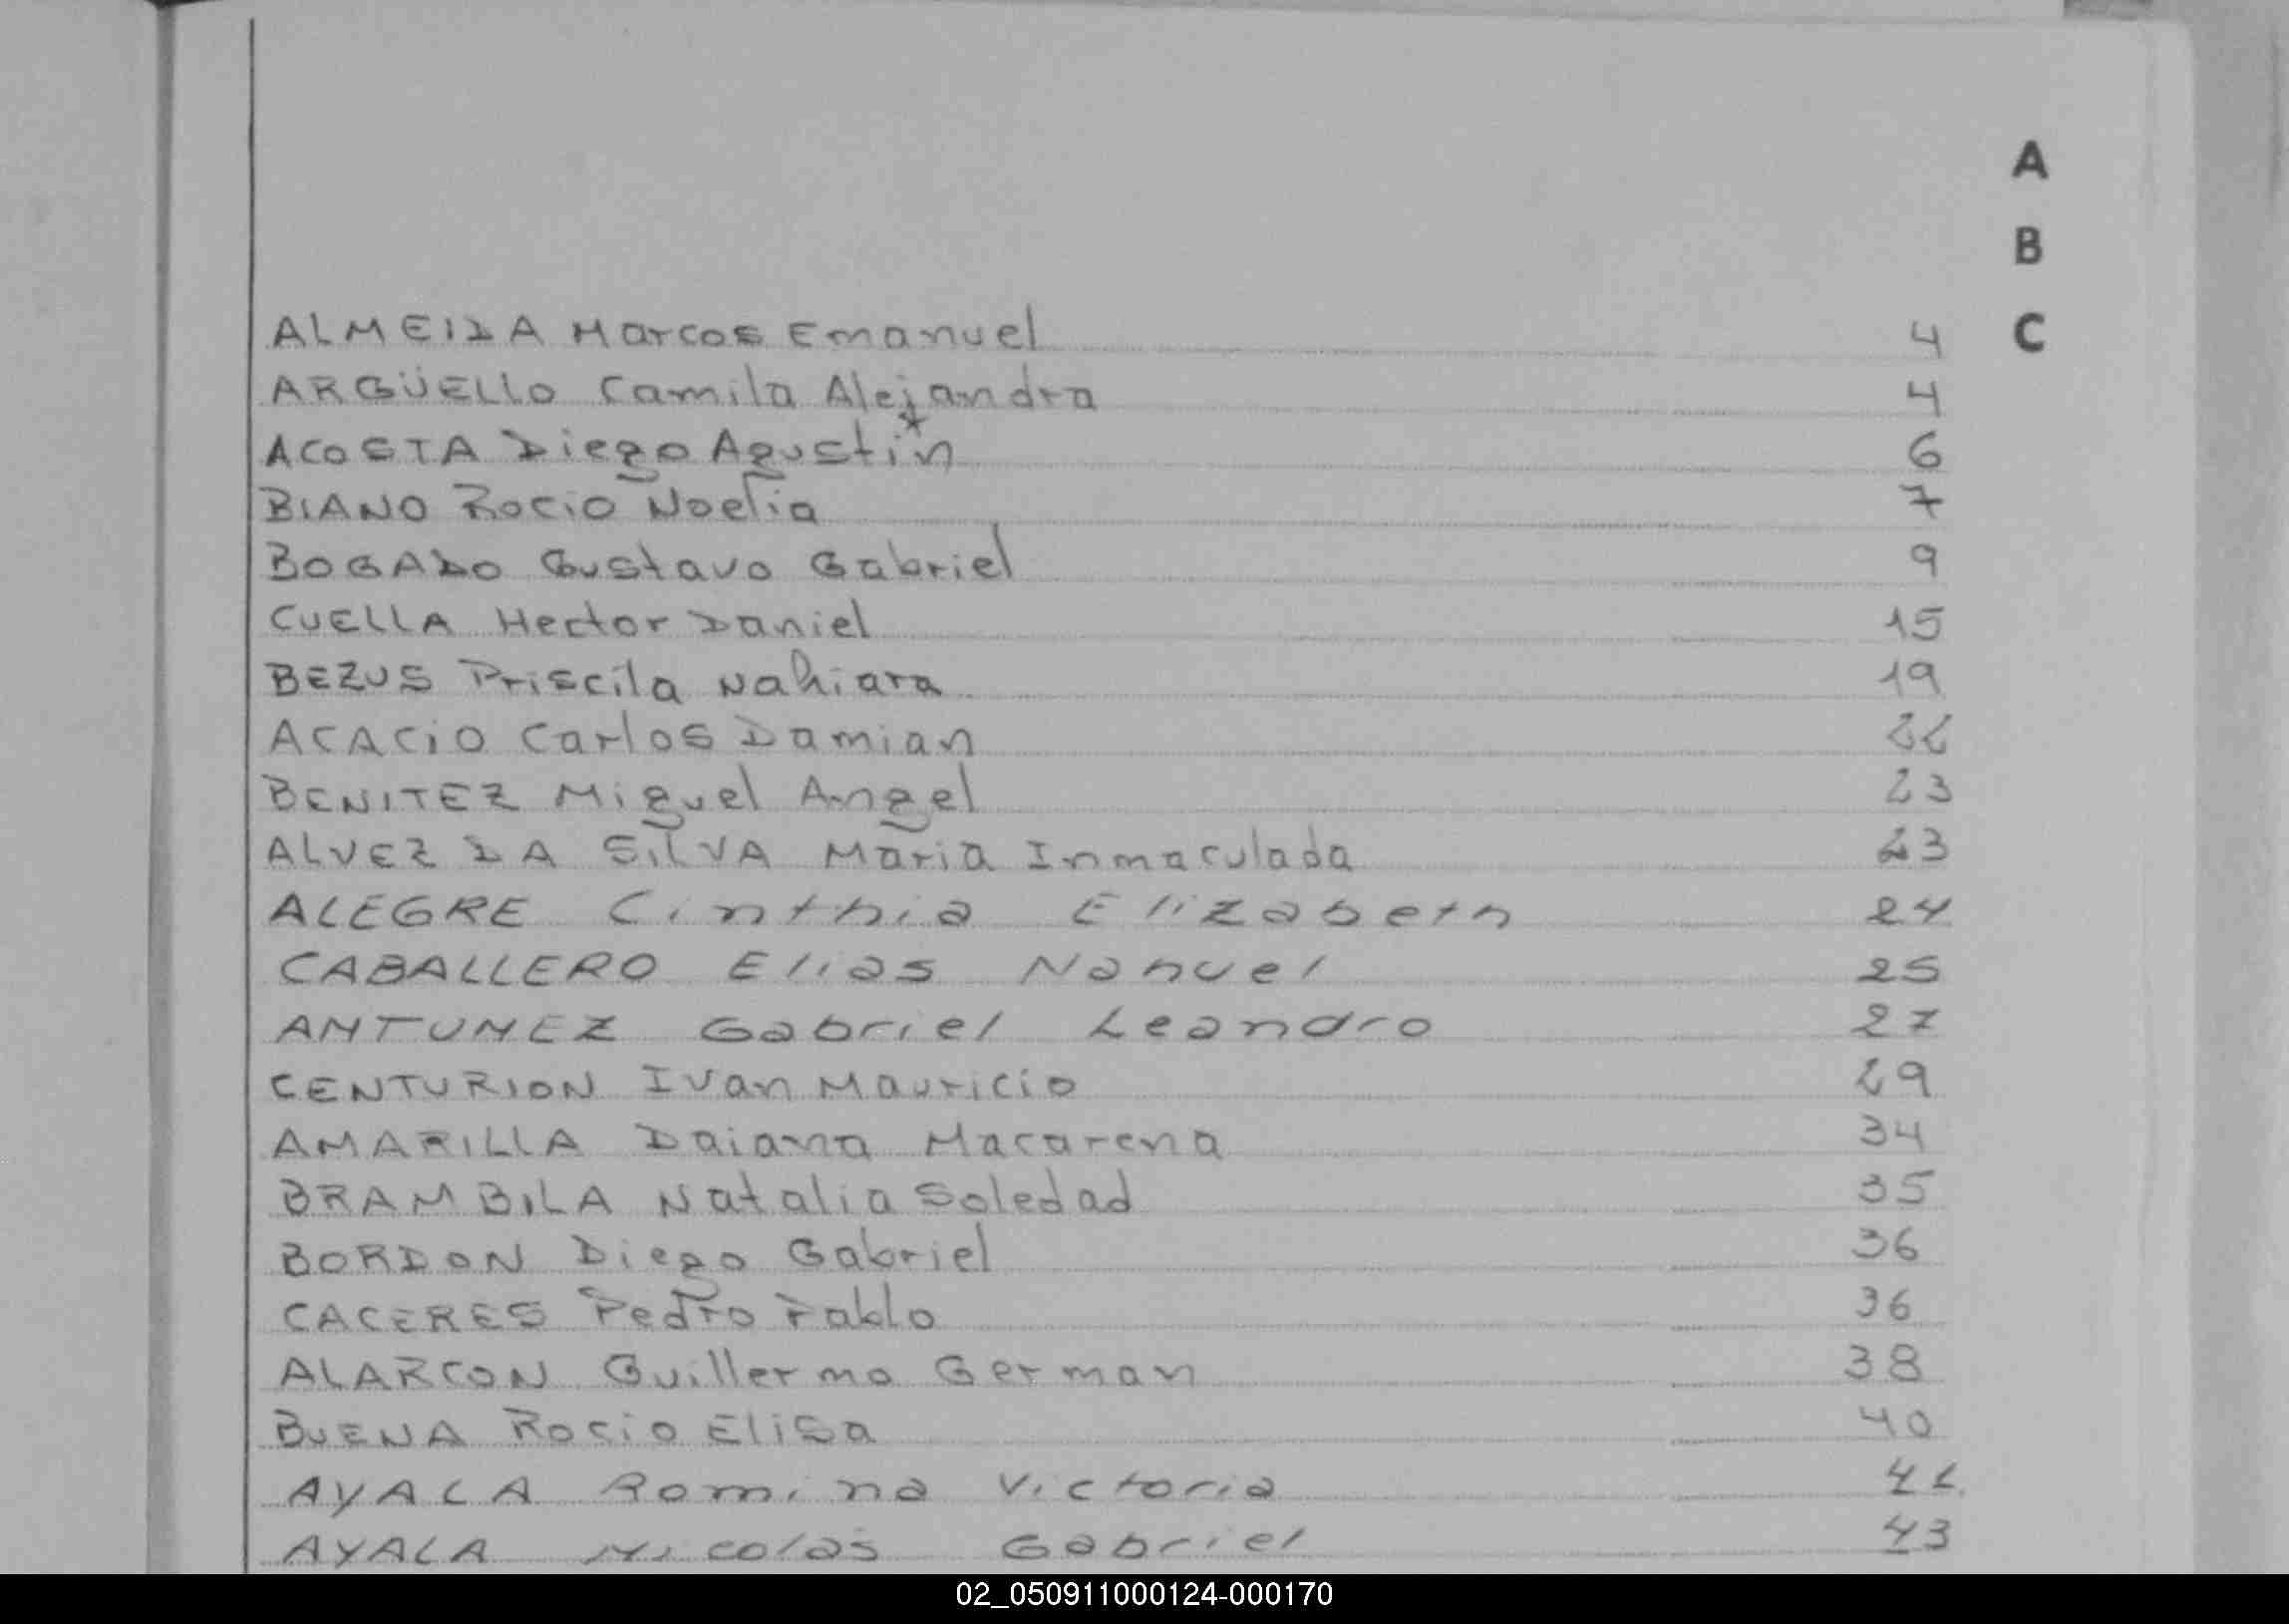 A
B
C
ALMEIDA Marcos Emanuel 4
ARGÜELLO Camila Alejandra 4
ACOSTA Diego Agustin 6
BIANO Rocio Noelia 7
BOGADO Gustavo Gabriel 9
CUELLA Hector Daniel 15
BEZUS Priscila Nahiara 19
ACACIO Carlos Damian 22
BENITEZ Miguel Angel 23
ALVEZ DA SILVA Maria Inmaculada 23
ALEGRE Cinthia Elizabeth 24
CABALLERO Elias Nahuel 25
ANTUNEZ Gabriel Leandro 27
CENTURION Ivan Mauricio 29
AMARILLA Daiana Macarena 34
BRAMBILA Natalia Soledad 35
BORDON Diego Gabriel 36
CACERES Pedro Pablo 36
ALARCON Guillermo German 38
BUENA Rocio Elisa 40
AYALA Romina Victoria 42
AYALA Nicolas Gabriel 43
02_050911000124-000170